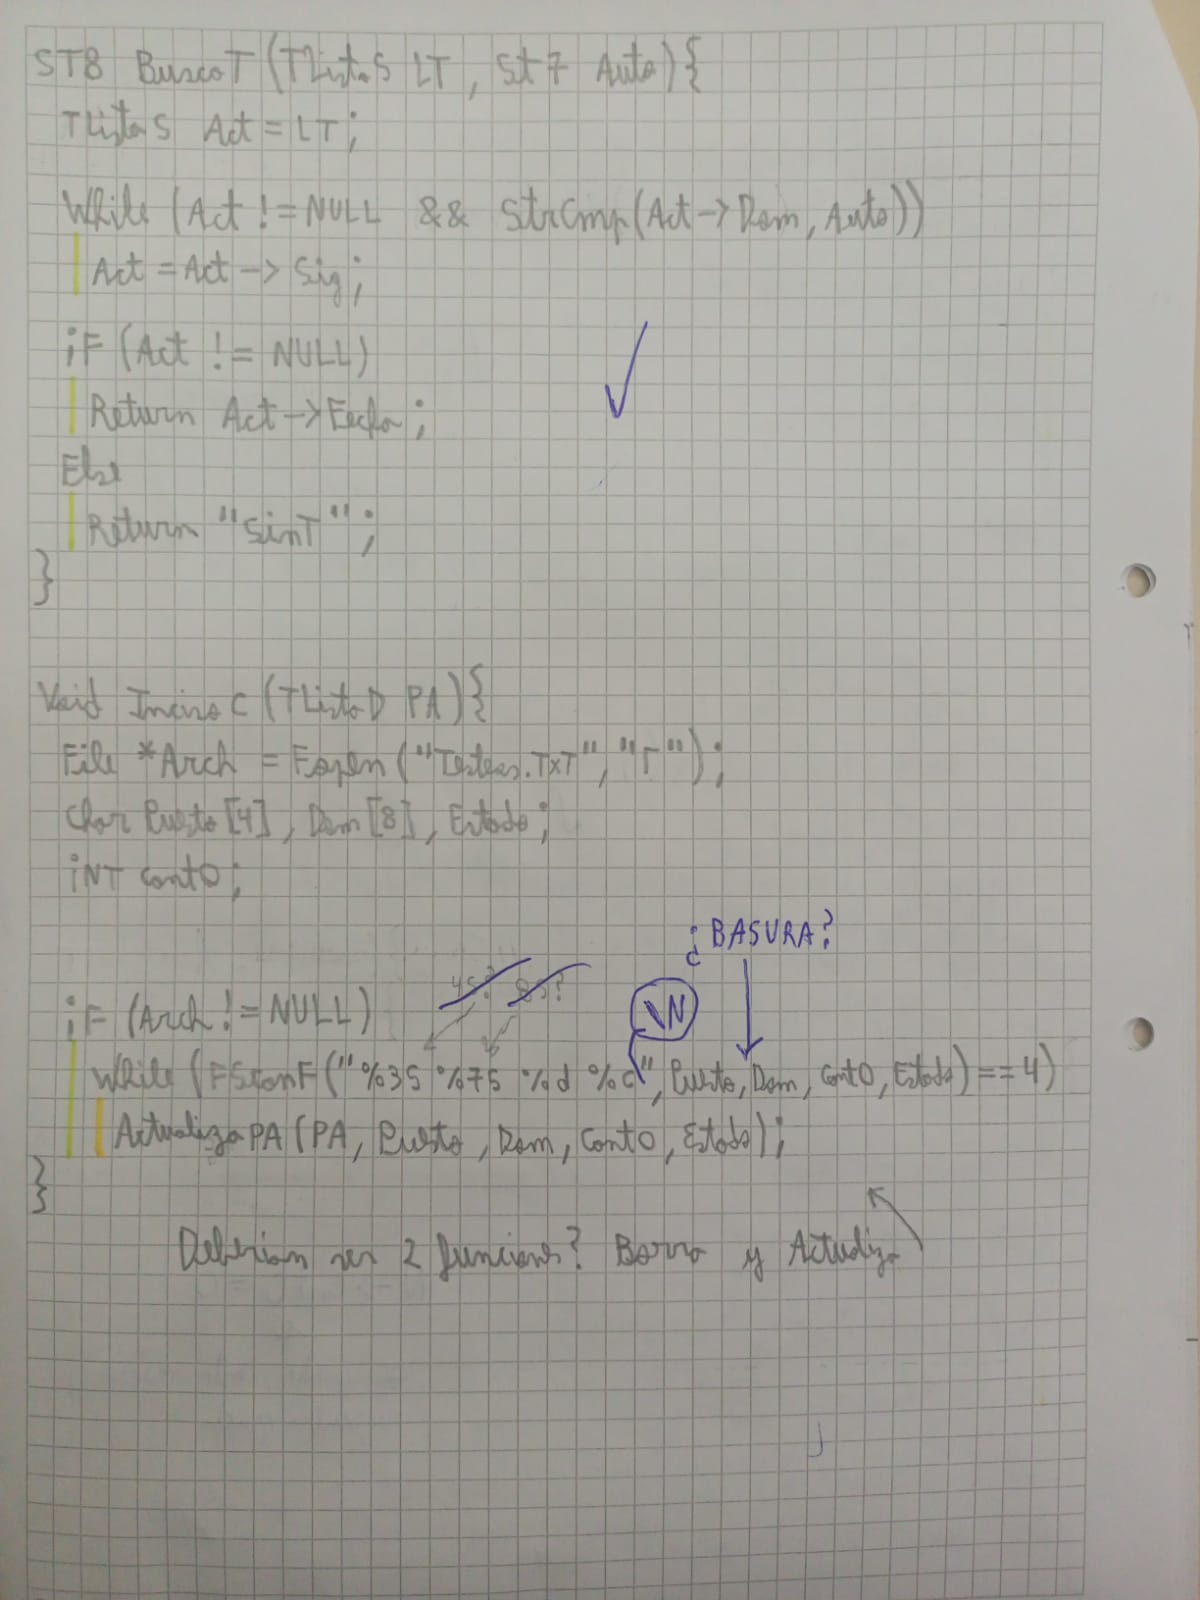 ST8 BuscoT (TListaS LT, St7 Auto){
TListaS Act = LT;
While (Act != NULL && StrCmp(Act->Dom, Auto))
Act = Act -> Sig;
iF (Act != NULL)
Return Act->Fecha;
Else
Return "SinT";
}
Void IncisoC (TListaD PA){
File *Arch = Fopen ("Testeos.TxT", "r");
Char Puesto[4], Dom[8], Estado;
iNT contO;
¿BASURA?
4s? 8s?
\N
iF (Arch != NULL)
While (FScanF("%3S %7S %d %c", Puesto, Dom, ContO, Estado) == 4)
ActualizaPA(PA, Puesto, Dom, ContO, Estado);
}
Deberian ser 2 funciones? Borra y Actualiza